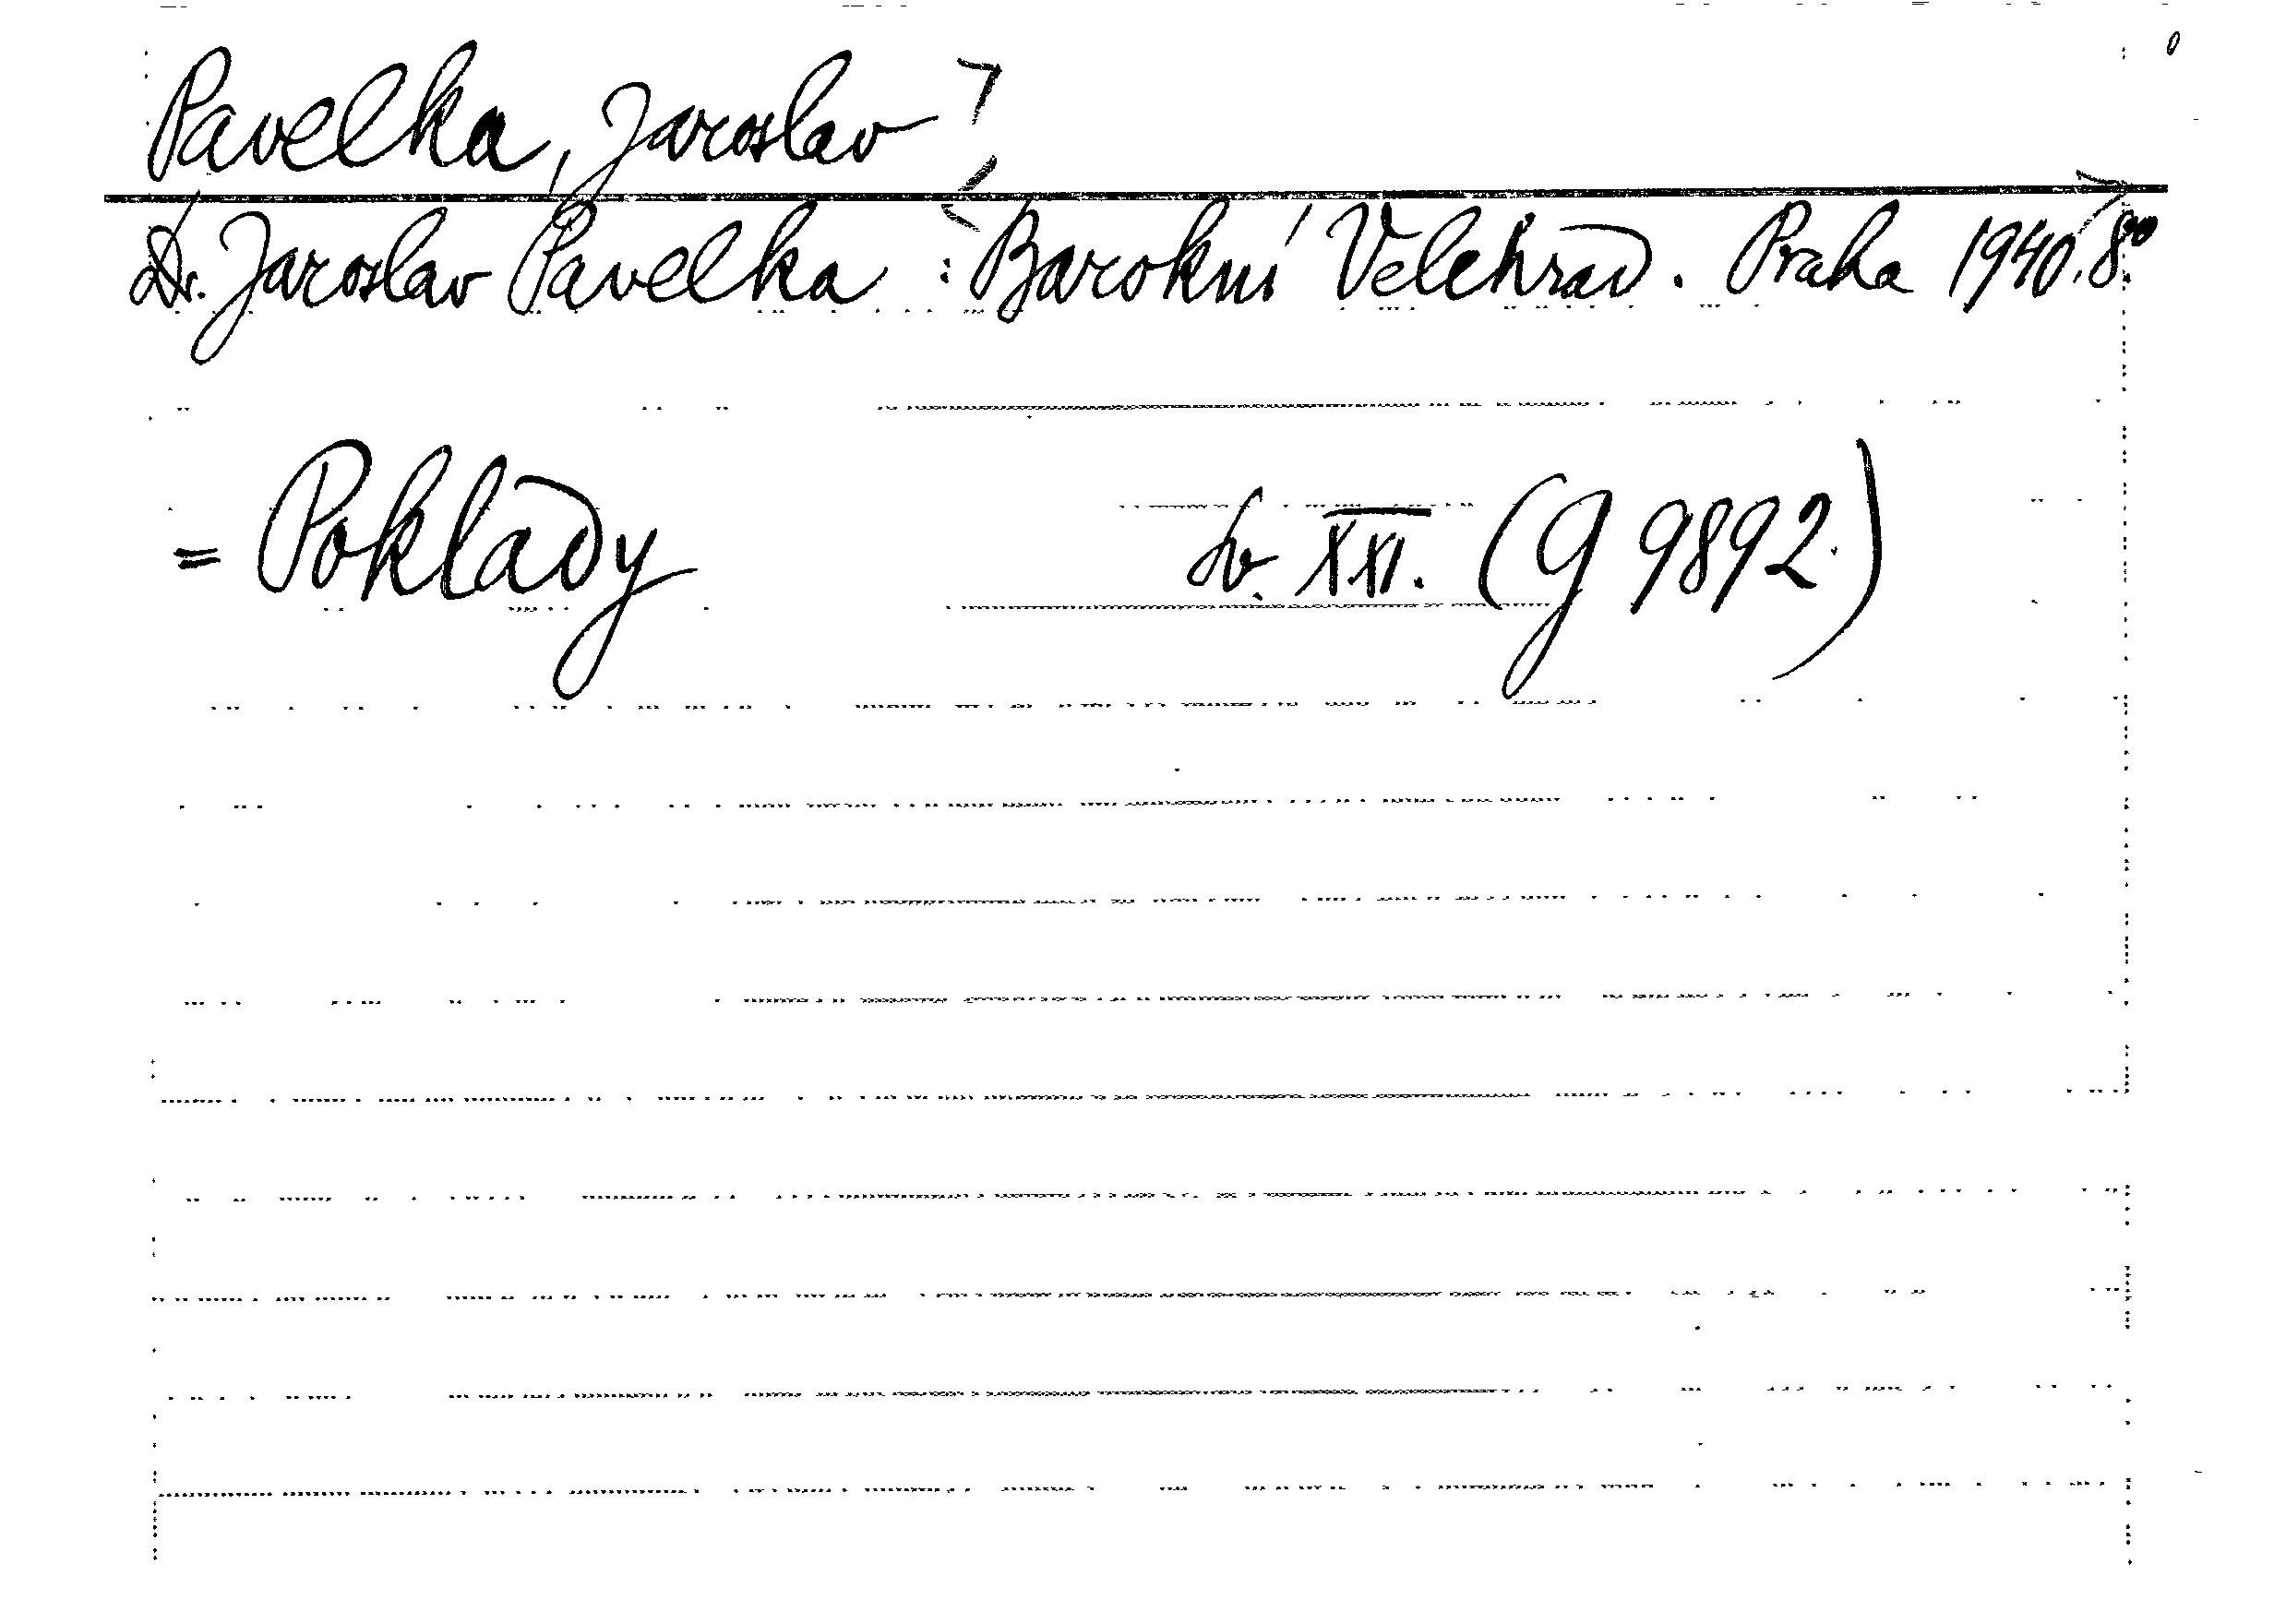 Pavelka, Jaroslav
Dr. Jaroslav Pavelka : Barokní Velehrad. Praha 1940. 8°.
= Poklady sv. XXI. (g 9892)